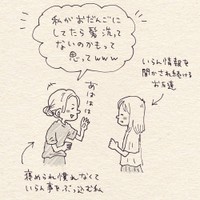 私がおだんごに
してたら髪洗って
ないのかもって
思ってwww
あははは
いらん情報を
聞かされ続ける
お友達
褒められ慣れなくて
いらん事をぶっ込む私